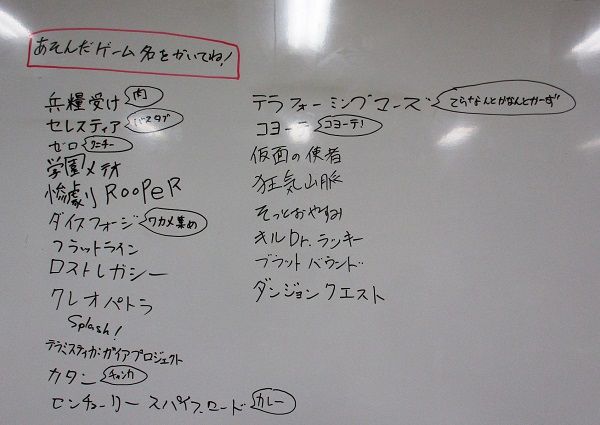 あそんだゲーム名をかいてね!
兵糧受け 肉
セレスティア バスタブ
ゼロ クニチー
学園メテオ
惨劇RooPeR
ダイスフォージ ワカメ集め
フラットライン
ロストレガシー
クレオパトラ
Splash!
テラミスティカ:ガイアプロジェクト
カタン チャンカ
センチューリー スパイスロード カレー
テラフォーミングマーズ てらなんとかなんとかーず
コヨーテ コヨーテ!
仮面の使者
狂気山脈
そっとおやすみ
キルDr.ラッキー
ブラットバウンド
ダンジョンクエスト